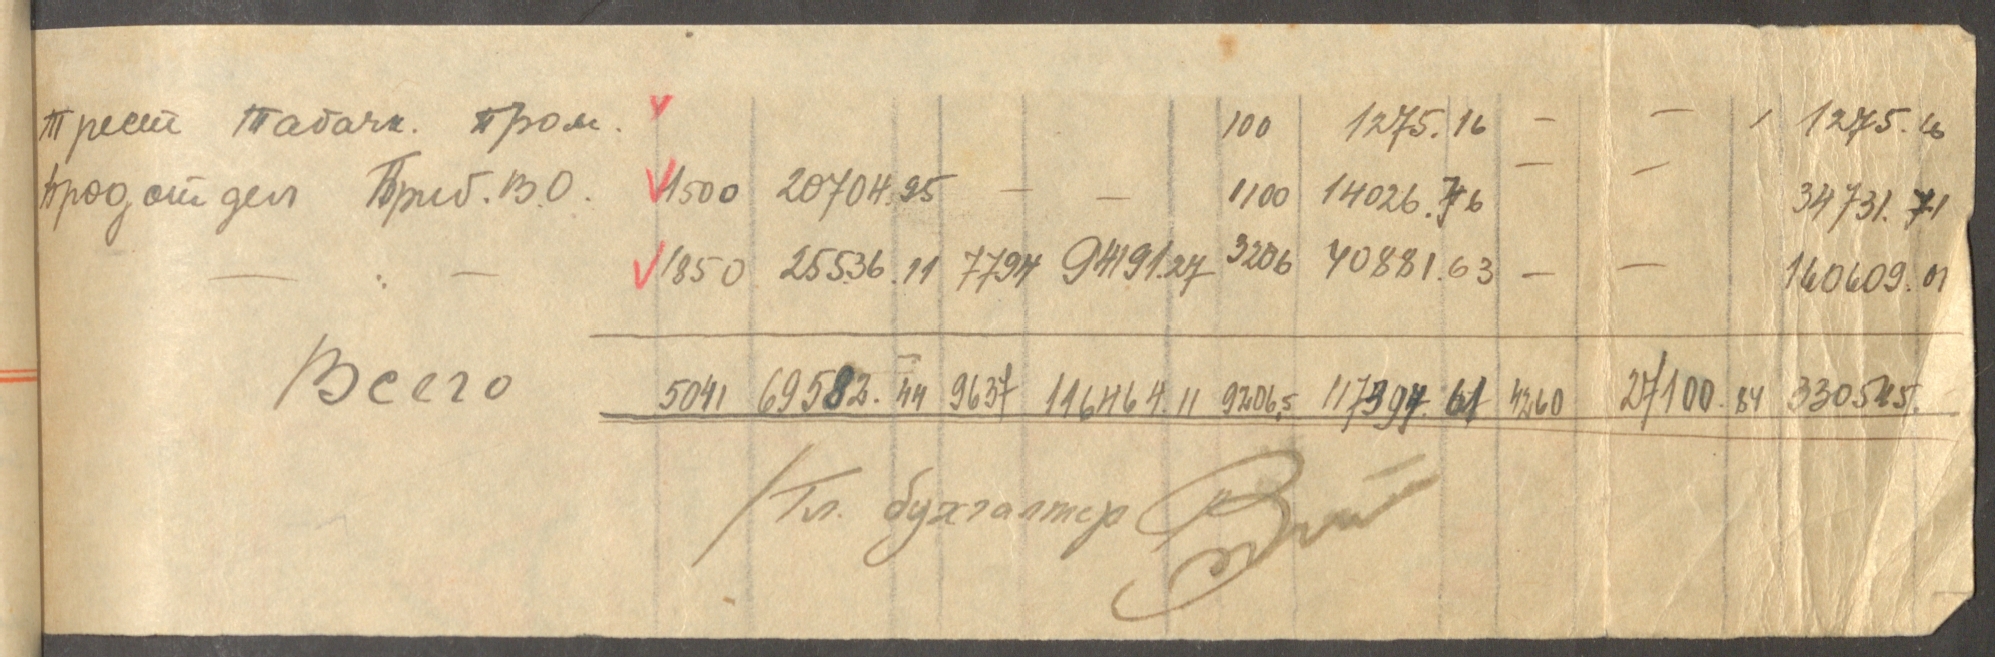 Трест Табачн. Пром. 100 1275.16 — — 1275.16
Продотдел Приб.В.О. 1500 20704.95 — — 1100 14026.76 — — 34731.71
— " — 1850 25536.11 7794 94191.27 3206 40881.63 — — 160609.01
Всего 5041 69582.44 9637 116464.11 9206,5 117397.61 4260 27100.84 330545.
Гл. бухгалтер